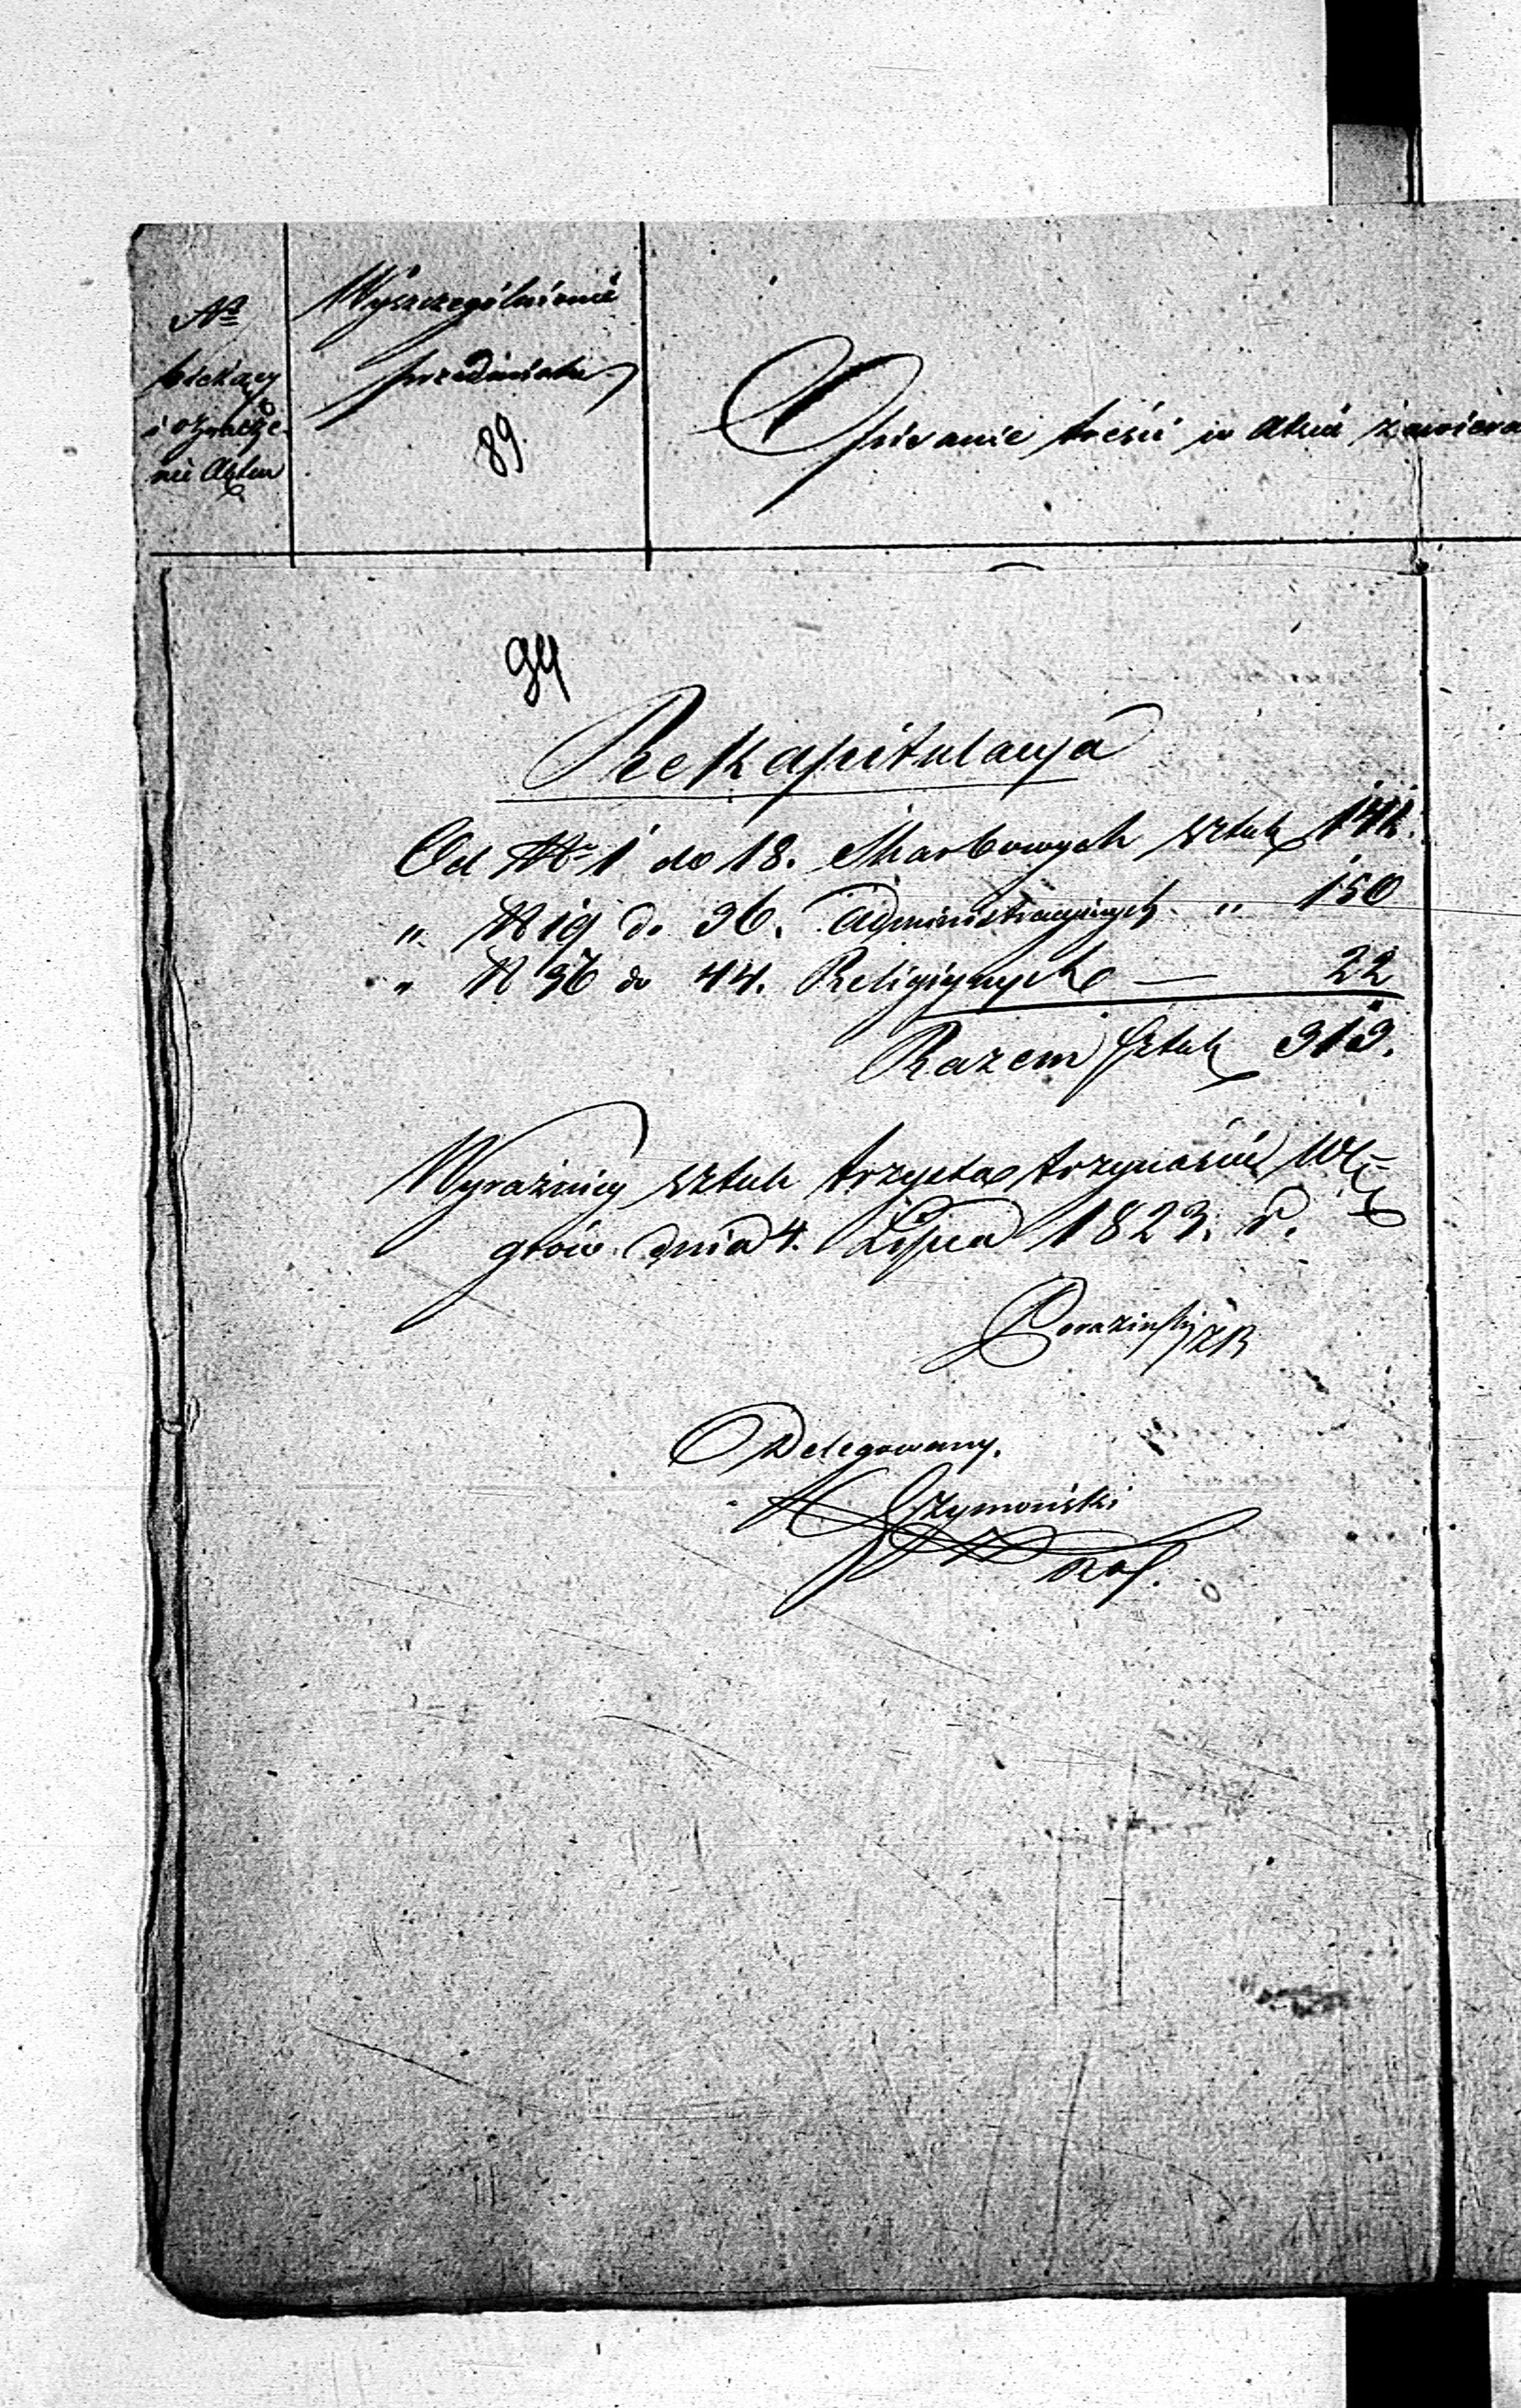 Nº
bieżący
i oznacze-
nie Aktu
Wyszczególnienie
przedmiotu
89.
Opisanie treści w Akcie zawiera
94
Rekapitulacya
Od Nr 1 do 18. Skarbowych sztuk 141.
„ N 19 do 36. Administracyinych „ 150
„ N 36 do 44. Religiynych — 22
Razem sztuk 313.
Wyraźniey sztuk trzysta trzynaście Wę-
grów dnia 4. Lipca 1823. r.
Delegowany.
Szymański